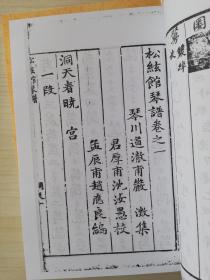 松絃館琴譜卷之一
琴川道澈甫嚴 澂集
君厚甫沈汝愚校
孟辰甫趙應良編
洞天春曉 宮
一段
松絃館琴譜